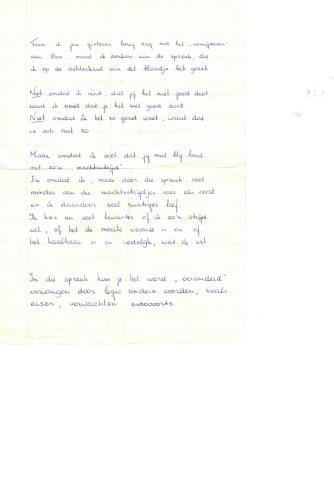 Toen ik jou gisteren bezig zag met het
van Bas, moest ik denken aan de spreuk, die
ik op de achterkant van dit blaadje heb gezet

Niet omdat ik vind, dat jij het niet goed doet,
want ik vind dat je het wel goed doet
Niet omdat ik het zo goed weet, want dat
is ook niet zo

Maar omdat ik weet dat jij niet blij bent
met zo'n "machtsstrijd"
En omdat ik, mede door die spreuk, veel
minder van die machtsstrijdjes voer als eerst
en ik daardoor veel rustiger leef.
Ik kies nu veel bewuster of ik zo'n strijd
wil, of het de moeite waard is en of
het haalbaar is en redelijk, wat ik wil

In die spreuk kun je het woord "veranderd"
vervangen door legio andere woorden, zoals
eisen, verwachten enzovoorts.